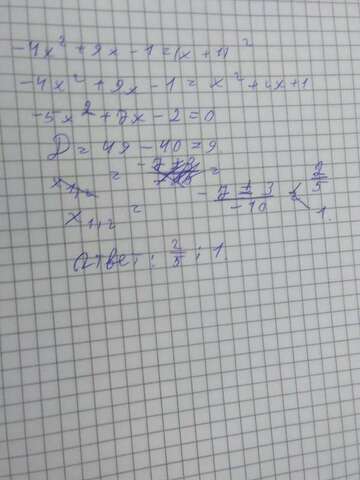 -4x² + 9x - 1 = (x + 1)²
-4x² + 9x - 1 = x² + 2x + 1
-5x² + 7x - 2 = 0
D = 49 - 40 = 9
x₁,₂ = =
x₁,₂ = -7 ± 3 / -10 < 2/5 1.
Ответ: 2/5 ; 1.